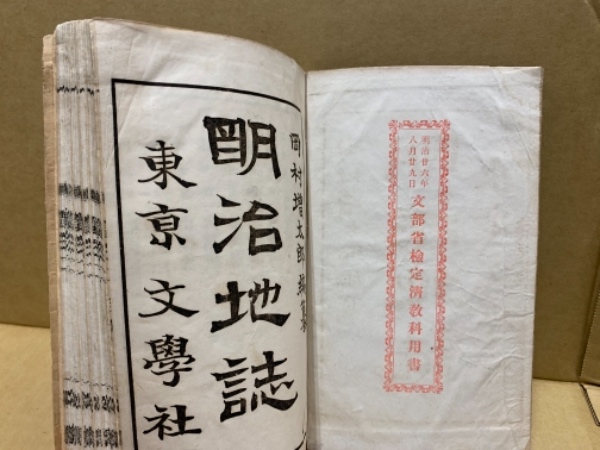 明治廿六年
八月廿九日
文部省檢定濟教科用書
岡村增太郎編纂
明治地誌
東京文學社